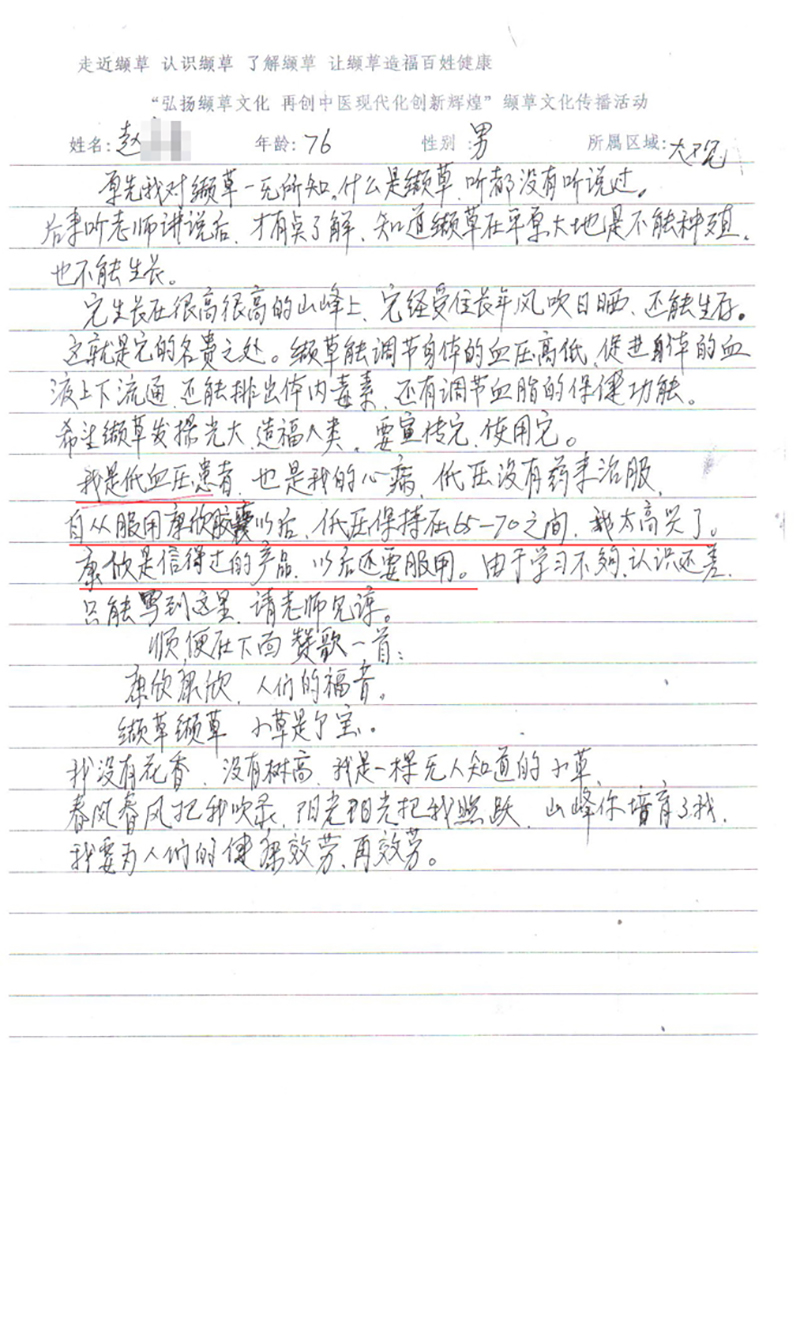 走近缬草 认识缬草 了解缬草 让缬草造福百姓健康
“弘扬缬草文化 再创中医现代化创新辉煌”缬草文化传播活动
姓名:赵 年龄:76 性别:男 所属区域:大观
原先我对缬草一无所知。什么是缬草、听都没有听说过。
后来听老师讲说后、才有点了解、知道缬草在平原大地是不能种殖、
也不能生长。
它生长在很高很高的山峰上、它经受住长年风吹日晒、还能生存。
这就是它的名贵之处。缬草能调节身体的血压高低、促进身体的血
液上下流通、还能排出体内毒素、还有调节血脂的保健功能。
希望缬草发揚光大、造福人类、要宣传它、使用它。
我是低血压患者、也是我的心病、低压没有药来治服、
自从服用康欣胶囊以后、低压保持在65-70之间、我太高兴了。
康欣是信得过的产品、以后还要服用。由于学习不夠、认识还差、
只能写到这里、请老师见谅。
顺便在下面赞歌一首:
康欣康欣、人们的福音。
缬草缬草 小草是个宝。
我没有花香、没有树高、我是一棵无人知道的小草、
春风春风把我吹绿、阳光阳光把我照跃、山峰你培育了我、
我要为人们的健康效劳、再效劳。